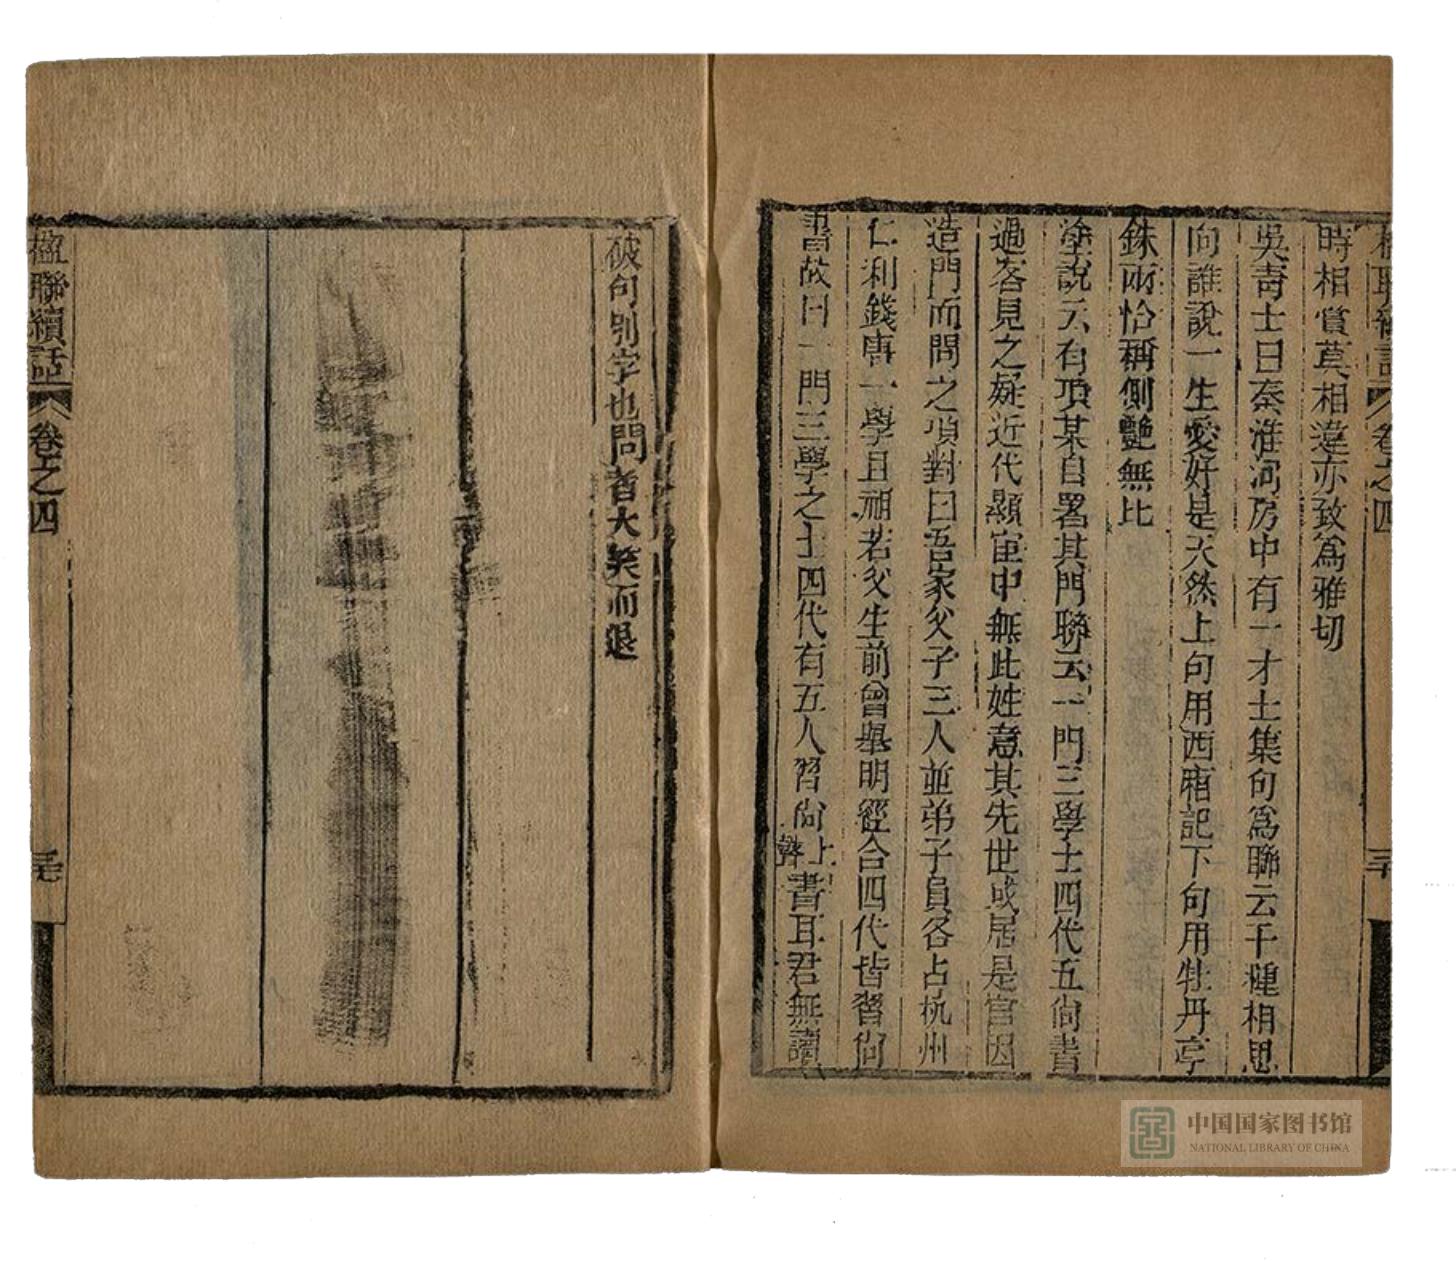 時相賞莫相違亦致爲雅切
吳靑士曰秦淮河房中有一才士集句爲聯云千種相思
向誰說一生愛好是天然上句用西廂記下句用牡丹亭
銖兩恰稱側艷無比
塗說云有項某自署其門聯云一門三學士四代五尙書
過客見之疑近代顯宦中無此姓意其先世或居是官因
造門而問之項對曰吾家父子三人並弟子員各占杭州
仁利錢唐一學且祖若父生前曾舉明經合四代皆習尙
書故曰一門三學之士四代有五人習尙上聲書耳君無讀
破句別字也問者大笑而退
楹聯續話
卷之四
中国国家图书馆
NATIONAL LIBRARY OF CHINA